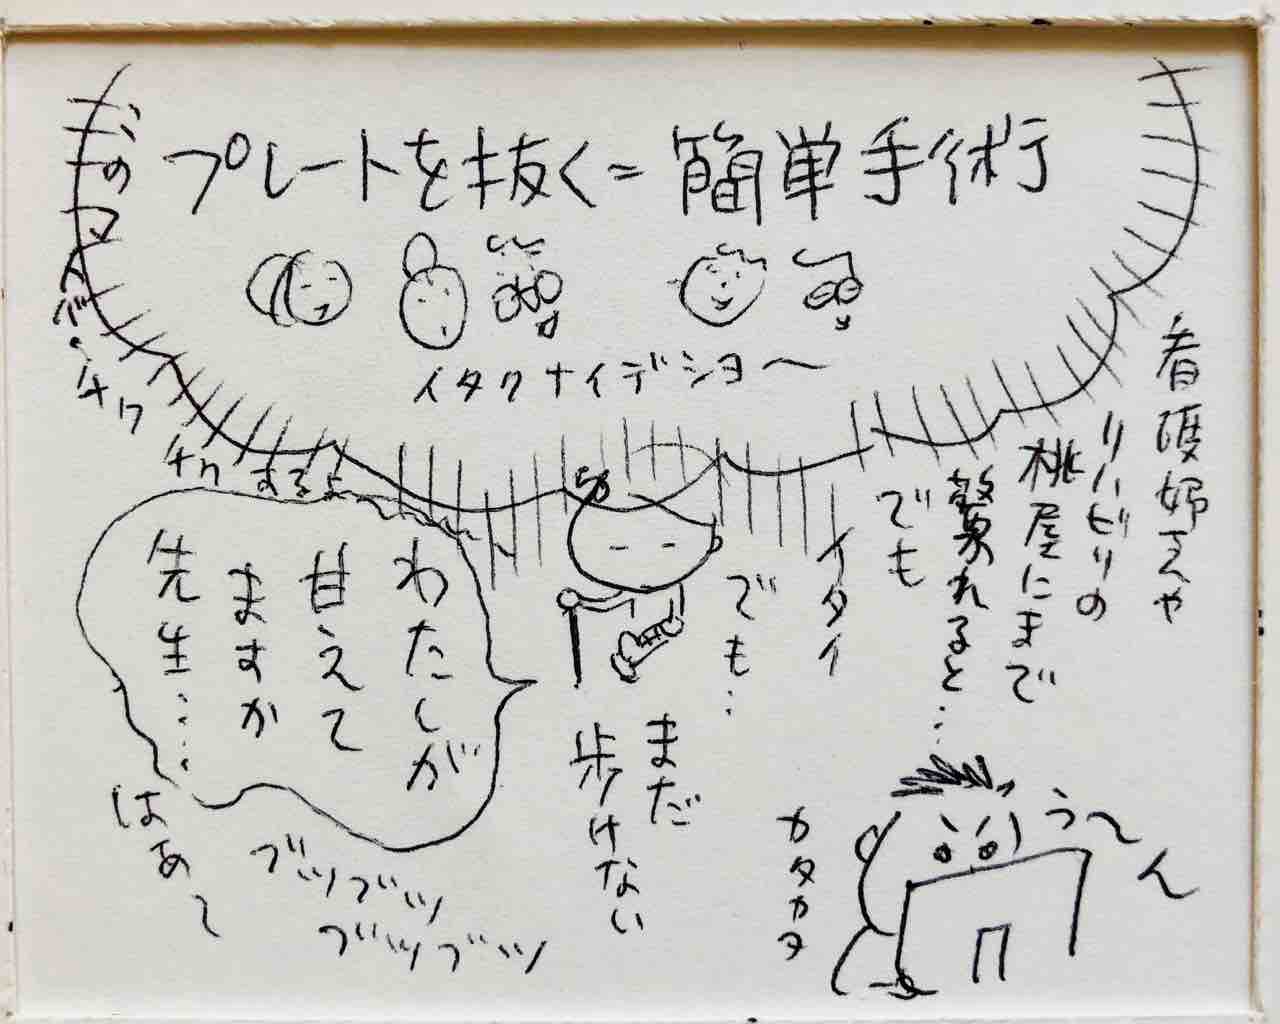 プレートを抜く=簡単手術
イタクナイデショ〜
看護婦さんや
リハビリの
桃屋にまで
でも
イタイ
でも…
まだ
歩けない
チク
チク
するよ
わたしが
甘えて
ますか
先生…
はあ〜
ブツブツ
ブツブツ
カタカタ
う〜ん